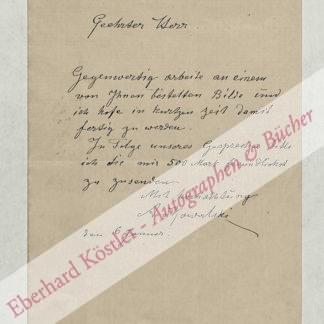 Geehrter Herr.
Gegenwertig arbeite an einem
von Ihnen bestelten Bilde und
ich hofe in kurtzen zeit damit
fertig zu werden.
In Folge unseres Gespreches bitte
ich die mir 500 Mark freundlichst
zu zusenden
Mit Hochachtung
den 6 Januar.
Eberhard Köstler - Autographen & Bücher